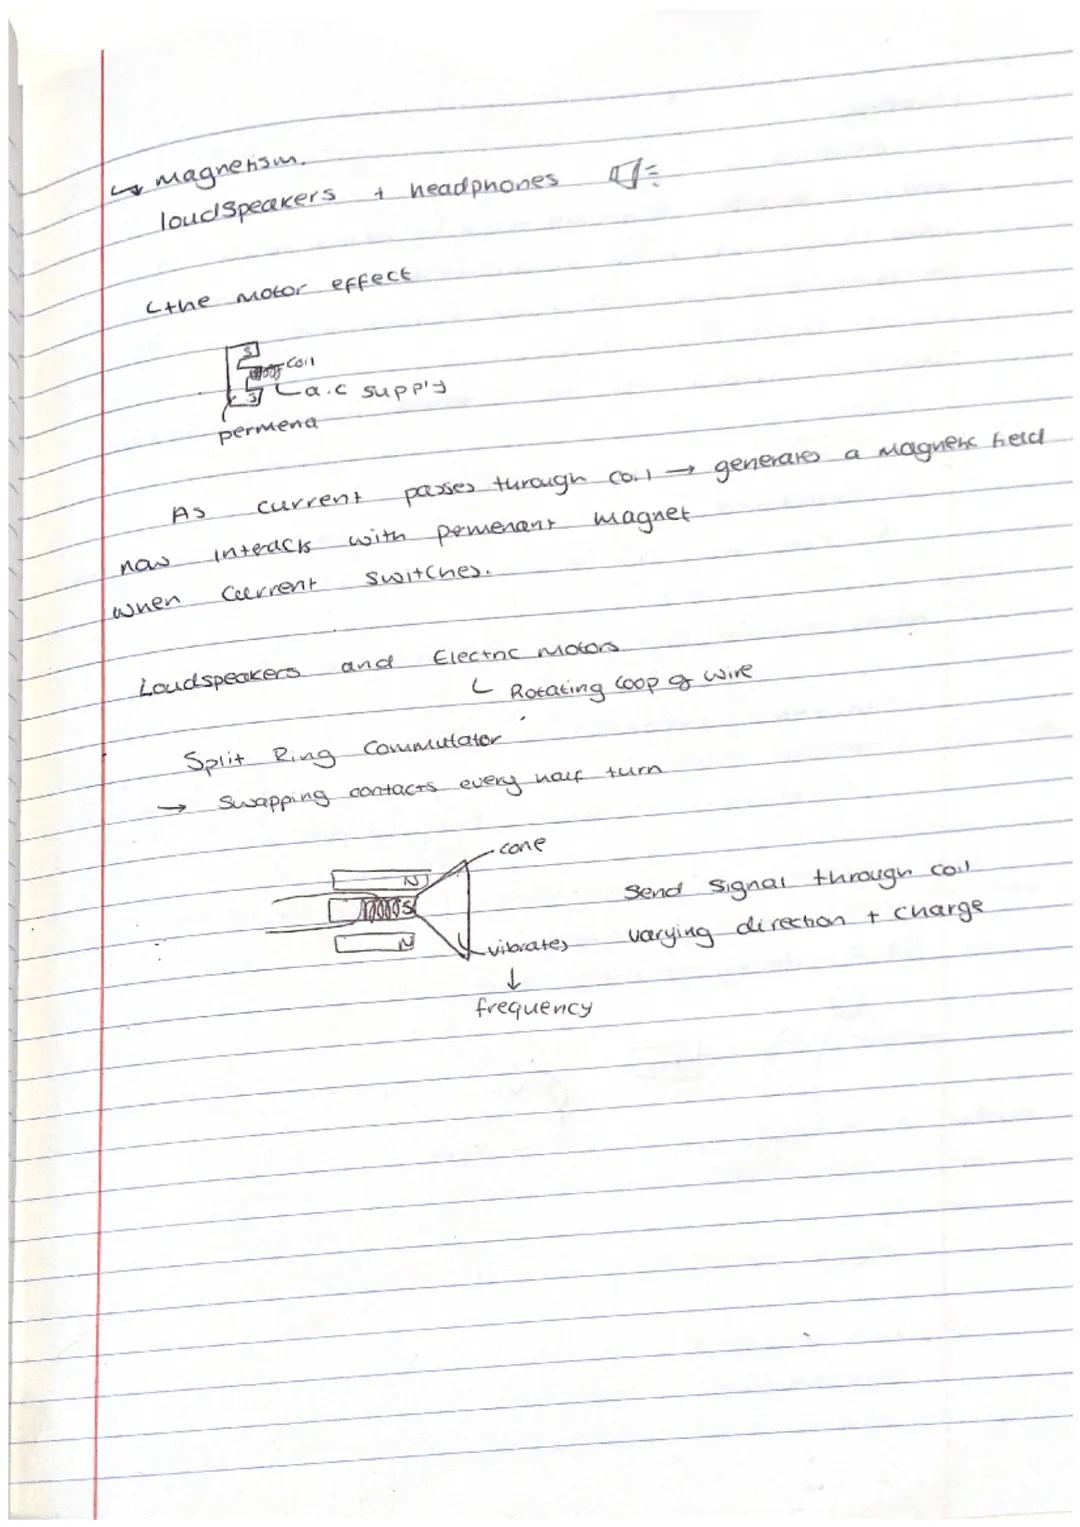 ↳ magnetism.
loudspeakers + headphones
↳ the motor effect
S
coil
a.c supply
S
permena
As current passes through coil → generates a magnetic field
now interacts with pemenant magnet
when current switches.
Loudspeakers and Electric motors
↳ Rotating loop of wire
Split Ring Commutator
→ Swapping contacts every half turn
cone
N
S
N
vibrates
↓
frequency
Send signal through coil
varying direction + charge